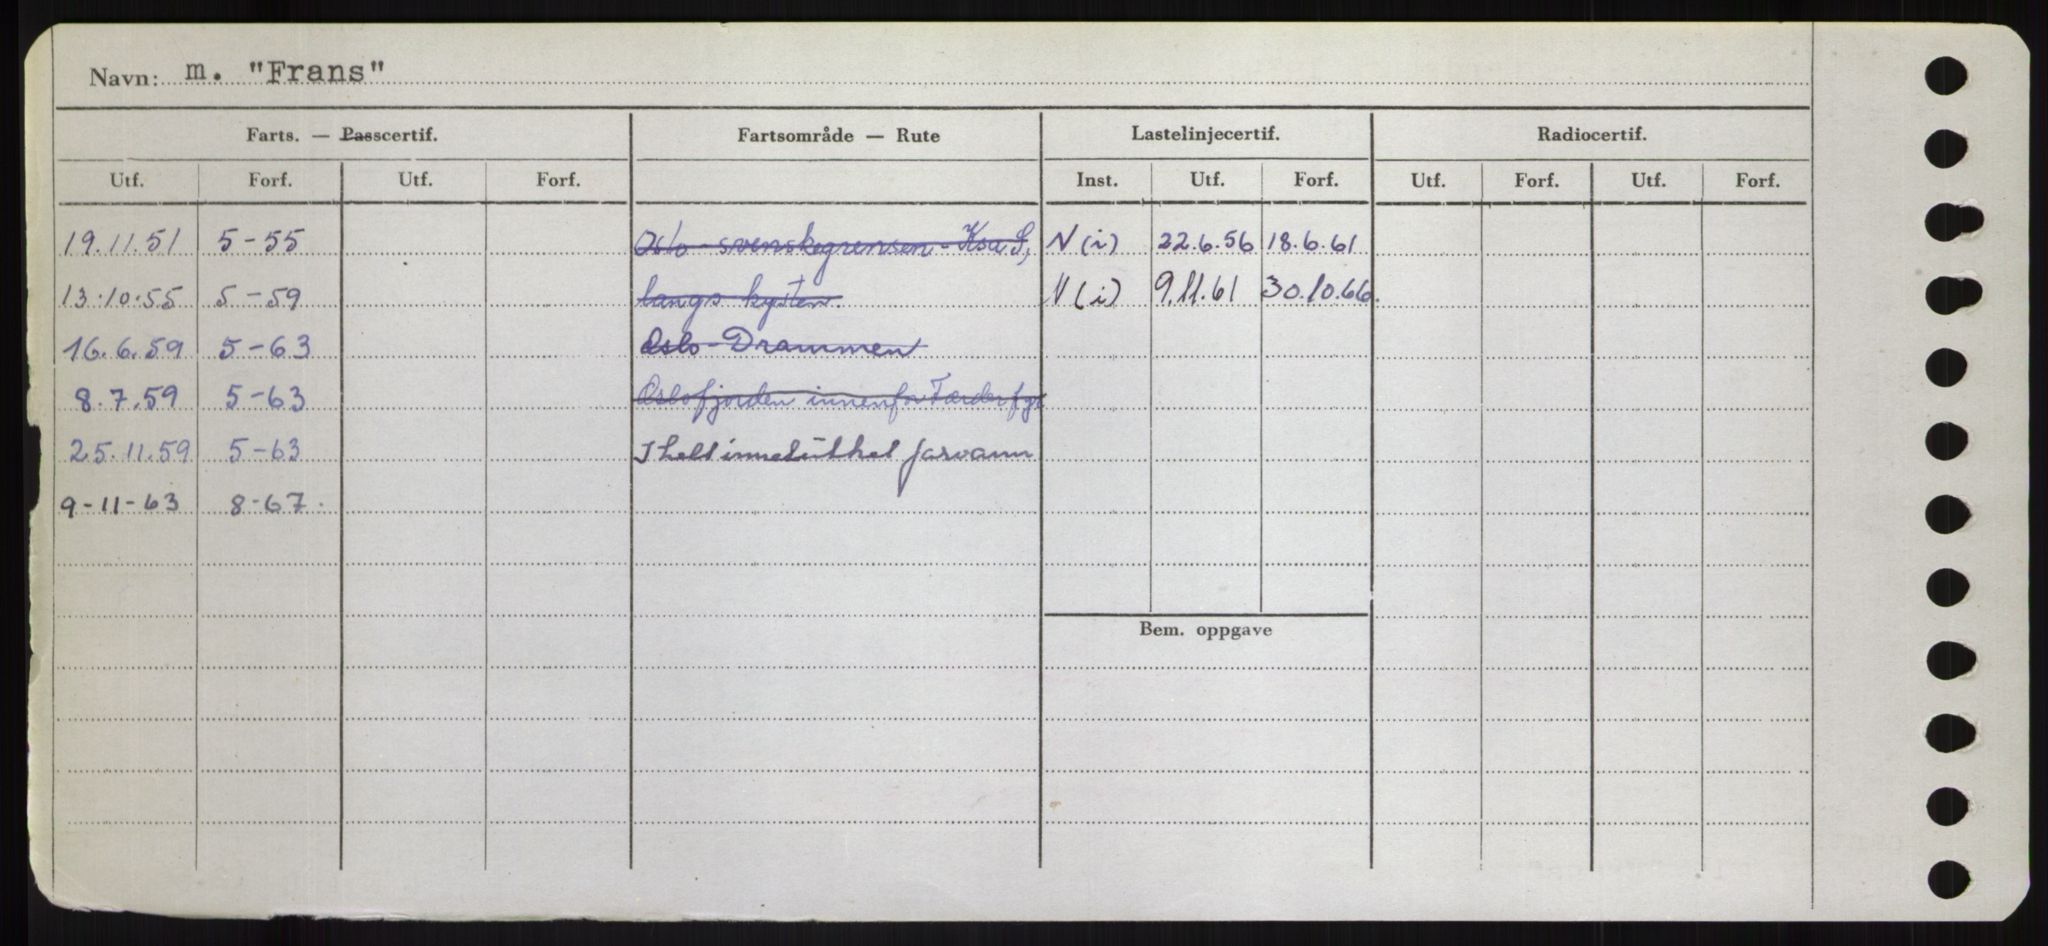 Navn: m. "Frans"
Farts. — Passcertif. Fartsområde — Rute Lastelinjecertif. Radiocertif.
Utf. Forf. Utf. Forf. Inst. Utf. Forf. Utf. Forf. Utf. Forf.
19.11.51 5-55 Oslo - svenskegrensen - Ksa S, N (i) 22.6.56 18.6.61
13.10.55 5-59 langs kysten. N (i) 9.11.61 30.10.66.
16.6.59 5-63 Oslo-Drammen
8.7.59 5-63 Oslofjorden innenfor Færder fyr
25.11.59 5-63 I helt innelukket farvann
9-11-63 8-67.
Bem. oppgave